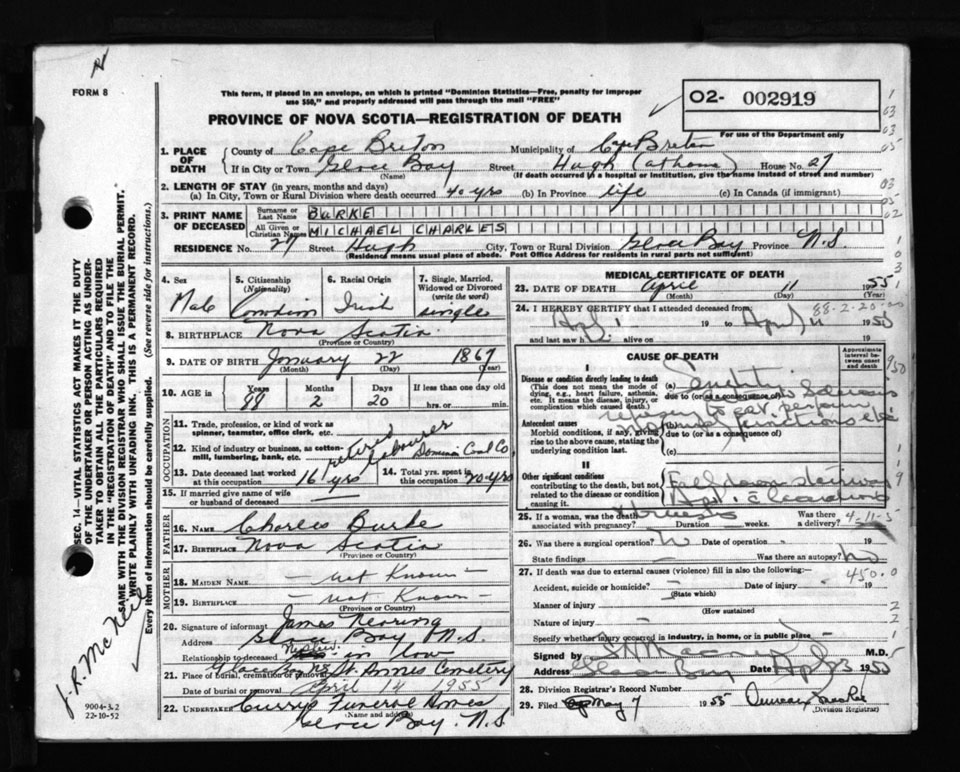 FORM 8
This form, if placed in an envelope, on which is printed "Dominion Statistics—Free, penalty for improper
use $50," and properly addressed will pass through the mail "FREE"
O2- 002919
For use of the Department only
PROVINCE OF NOVA SCOTIA—REGISTRATION OF DEATH
1. PLACE OF DEATH
County of Cape Breton Municipality of Cape Breton
If in City or Town Glace Bay Street Hugh (at home) House No. 27
(Name) (If death occurred in a hospital or institution, give the name instead of street and number)
2. LENGTH OF STAY (in years, months and days)
(a) In City, Town or Rural Division where death occurred 40 yrs (b) In Province life (c) In Canada (if immigrant)
3. PRINT NAME OF DECEASED
Surname or Last Name BURKE
All Given or Christian Names MICHAEL CHARLES
RESIDENCE No. 27 Street Hugh City, Town or Rural Division Glace Bay Province N.S.
(Residence means usual place of abode. Post Office Address for residents in rural parts not sufficient)
4. Sex
Male
5. Citizenship
(Nationality)
6. Racial Origin
Irish
7. Single, Married, Widowed or Divorced
(write the word)
single
8. BIRTHPLACE Nova Scotia
(Province or Country)
9. DATE OF BIRTH January 22 1867
(Month) (Day) (Year)
10. AGE is
Years Months Days If less than one day old
88 2 20 hrs. or min.
OCCUPATION
11. Trade, profession, or kind of work as spinner, teamster, office clerk, etc. retired labourer
12. Kind of industry or business, as cotton-mill, lumbering, bank, etc. Dominion Coal Co.
13. Date deceased last worked at this occupation 16 yrs
14. Total yrs. spent in this occupation 20 yrs
15. If married give name of wife or husband of deceased —
FATHER
16. NAME Charles Burke
17. BIRTHPLACE Nova Scotia
(Province or Country)
MOTHER
18. MAIDEN NAME — not Known —
19. BIRTHPLACE — not Known —
(Province or Country)
20. Signature of informant James Nearing
Address Glace Bay N.S.
Relationship to deceased Nephew in law
21. Place of burial, cremation or removal Glace Bay N.S. St. Annes Cemetery
Date of burial or removal April 14 1955
22. UNDERTAKER Currys Funeral Homes
(Name and address)
Glace Bay N.S.
MEDICAL CERTIFICATE OF DEATH
23. DATE OF DEATH April 11 1955
(Month) (Day) (Year)
88-2-20
24. I HEREBY CERTIFY that I attended deceased from
Apl 1 19 to Apl 11 1955
and last saw h alive on 19
CAUSE OF DEATH
Approximate interval between onset and death
I
Disease or condition directly leading to death
(This does not mean the mode of dying, e.g., heart failure, asthenia, etc. It means the disease, injury, or complication which caused death.)
(a) Senility
due to (or as a consequence of)
refusing to eat, perform
Antecedent causes
Morbid conditions, if any, giving rise to the above cause, stating the underlying condition last.
(b) normal functions etc
due to (or as a consequence of)
(c)
II
Other significant conditions
contributing to the death, but not related to the disease or condition causing it.
Fall down stairway
Apl 1 lacerations
25. If a woman, was the death associated with pregnancy? Duration weeks. Was there a delivery?
4-11-5
26. Was there a surgical operation? no Date of operation
State findings Was there an autopsy? no
27. If death was due to external causes (violence) fill in also the following:—
450.0
Accident, suicide or homicide? Date of injury 19
(State which)
Manner of injury
(How sustained
Nature of injury
Specify whether injury occurred in industry, in home, or in public place
Signed by M.D.
Address Glace Bay Date Apl 13 1955
28. Division Registrar's Record Number
29. Filed May 7 1955
(Division Registrar)
SEC. 14—VITAL STATISTICS ACT MAKES IT THE DUTY
OF THE UNDERTAKER OR PERSON ACTING AS UNDER-
TAKER TO OBTAIN ALL THE PARTICULARS REQUIRED
IN THE "REGISTRATION OF DEATH" AND TO FILE THE
SAME WITH THE DIVISION REGISTRAR WHO SHALL ISSUE THE BURIAL PERMIT.
WRITE PLAINLY WITH UNFADING INK. THIS IS A PERMANENT RECORD.
Every item of information should be carefully supplied. (See reverse side for instructions.)
J.R. McNeil
9004-3.2
22-10-52